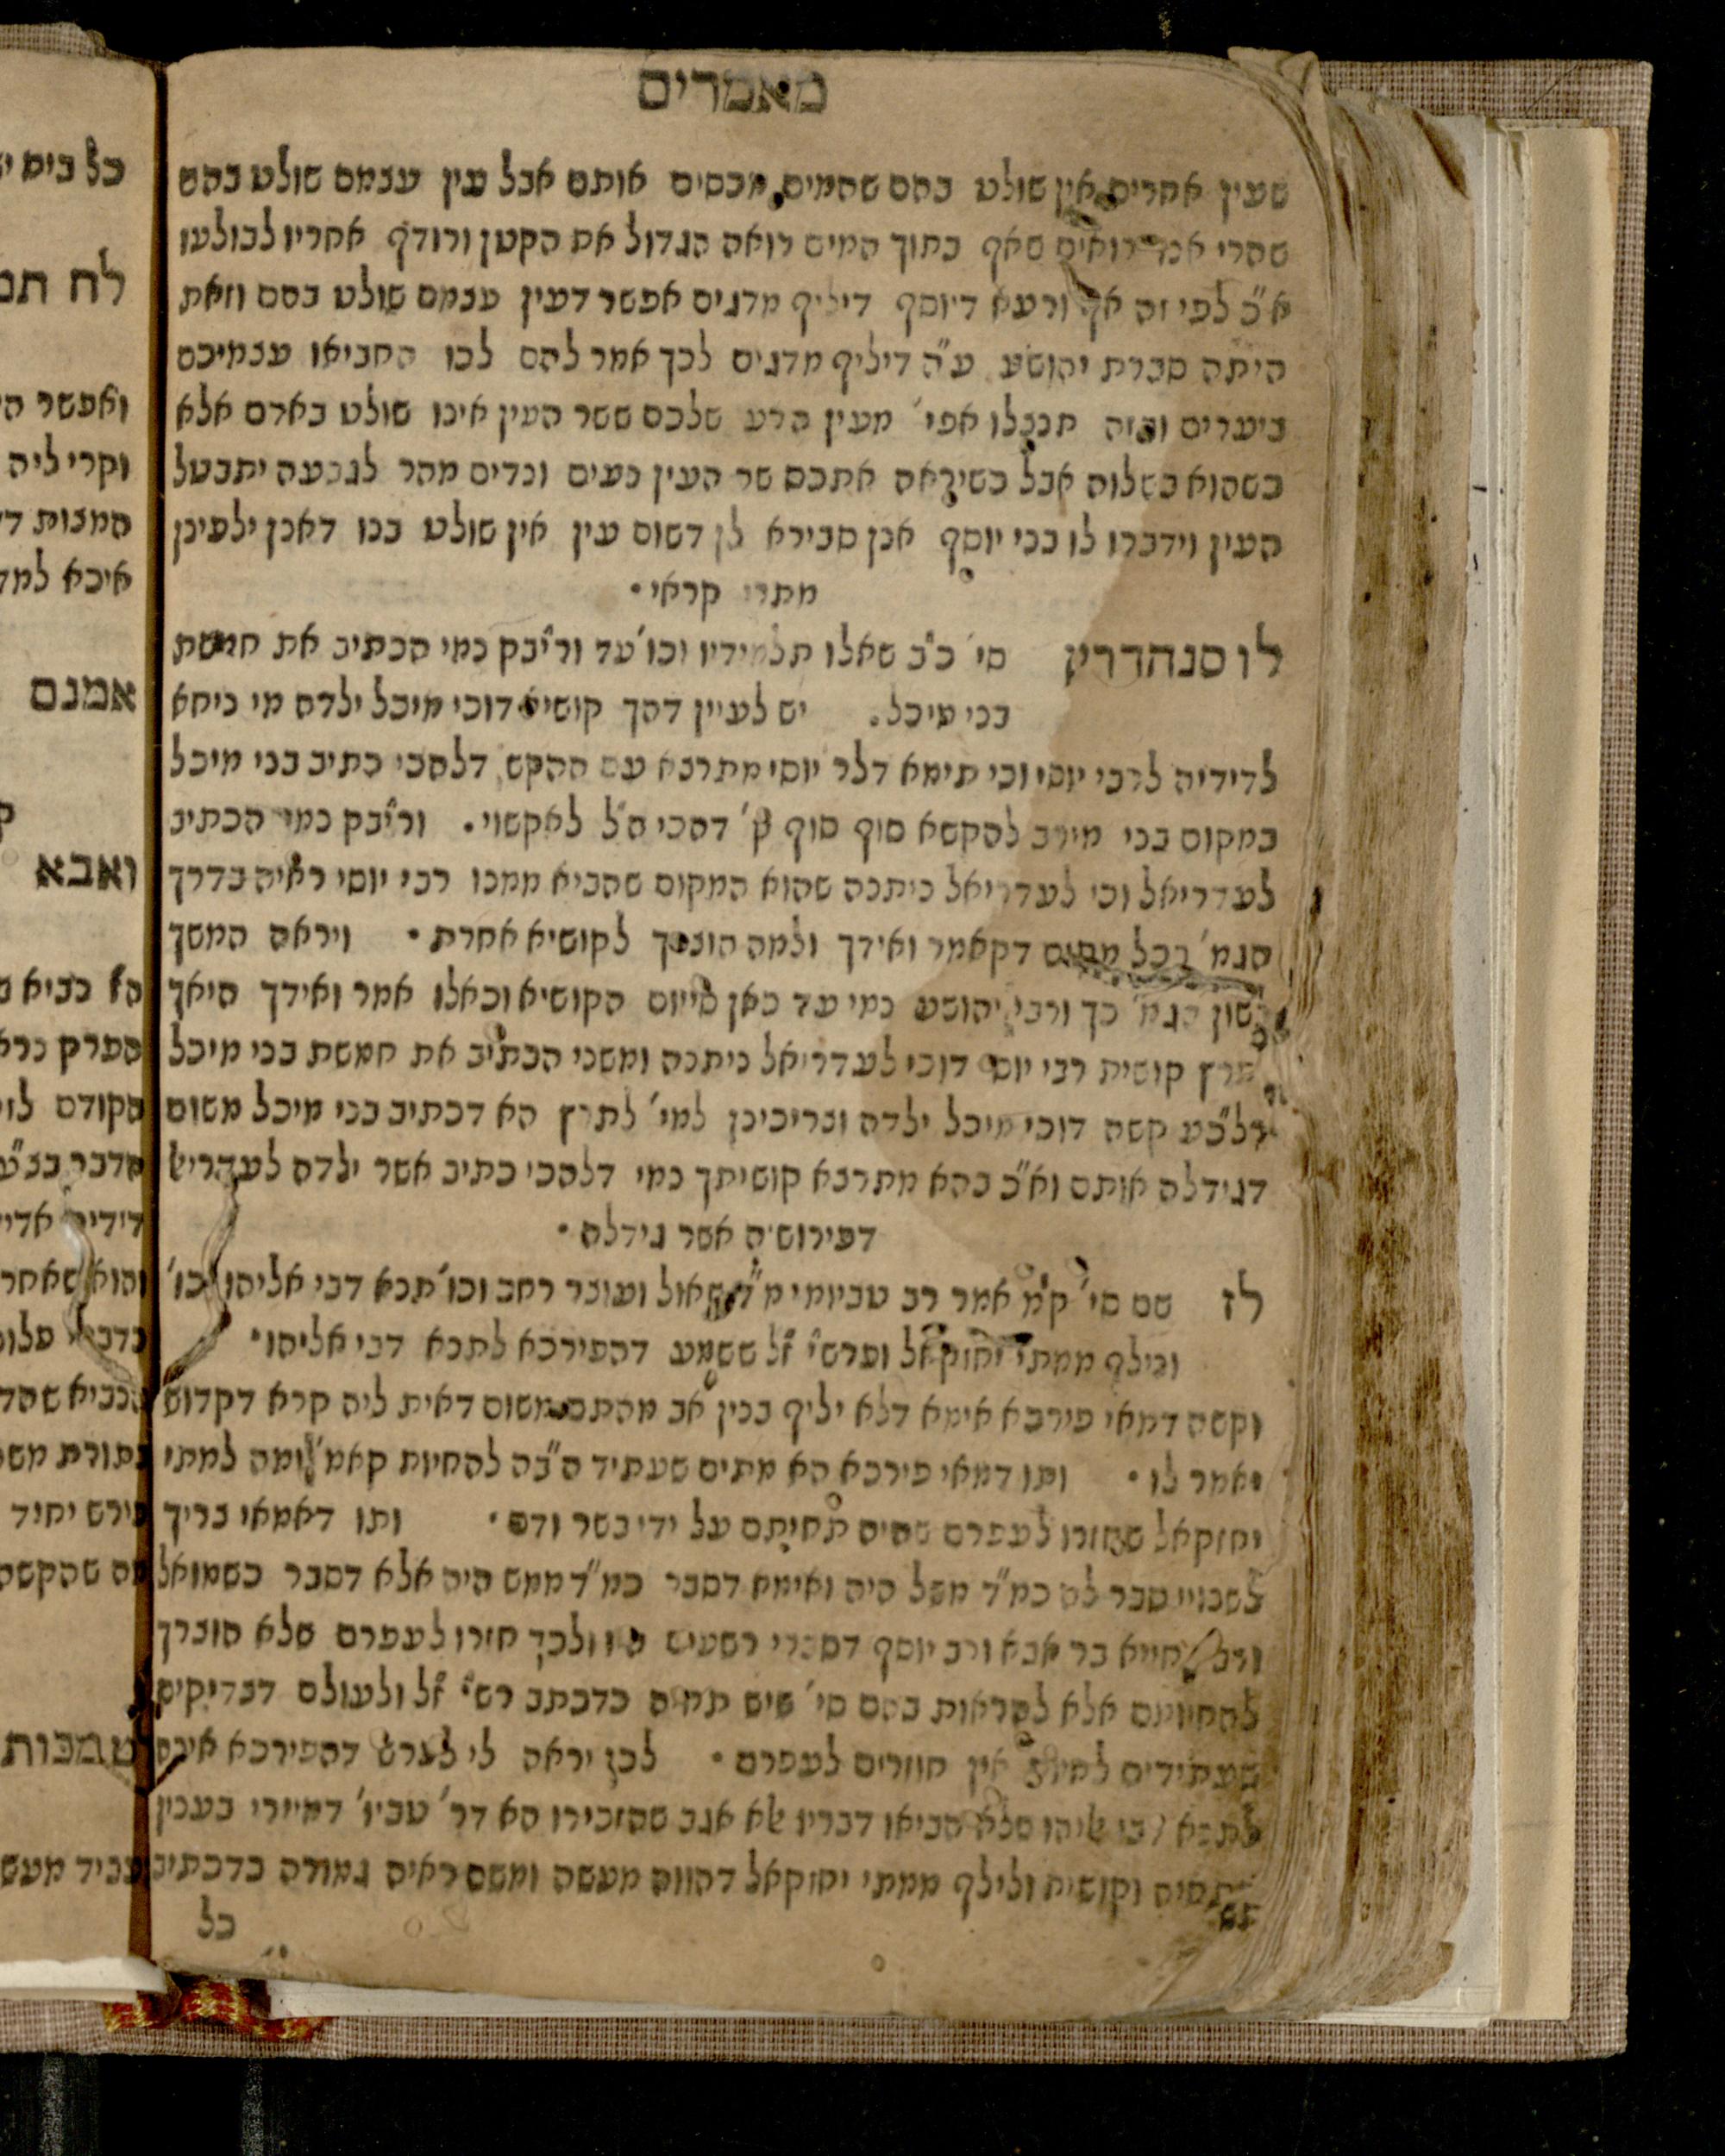 מאמרים
שעין אחרים אין שולט בהם שהמים מכסים אותם אבל עין עצמם שולט בהם
שהרי אנו רואים שאף בתוך המים רואה הגדול את הקטן ורודף אחריו לבולעו
א"כ לפי זה אף זרעא דיוסף דיליף מדגים אפשר דעין עצמם שולט בהם וזאת
היתה סברת יהושע ע"ה דיליף מדגים לכך אמר להם לכו החביאו עצמיכם
ביערים ובזה תנצלו אפי' מעין הרע שלכם ששר העין אינו שולט באדם אלא
כשהוא בשלוה אבל כשיראה אתכם שר העין נעים ונדים מהר לגבעה יתבטל
העין וידברו לו בני יוסף אנן סבירא לן דשום עין אין שולט בנו דאנן ילפינן
מתרי קראי.
לו סנהדרין סי' כ"ב שאלו תלמידיו וכו' עד ור"יבק נמי הכתיב את חמשת
בני מיכל. יש לעיין דהך קושיא דוכי מיכל ילדה מי ניחא
לדידיה לרבי יוסי וכי תימא דלר יוסי מתרצא עם ההקש דלהכי כתיב בני מיכל
במקום בני מירב להקשא סוף סוף דהכי ה"ל לאקשויי. ור"יבק נמי הכתיב
לעדריאל וכי לעדריאל ניתנה שהוא המקום שהביא ממנו רבי יוסי ראיה בדרך
הגמ' בכל מקום דקאמר ואידך ולמה הוצרך לקושיא אחרת. ויראה המשך
לשון הגמ' כך ורבי יהושע נמי עד כאן סיום הקושיא וכאלו אמר ואידך היאך
תרץ קושית רבי יוסי דוכי לעדריאל ניתנה ומשני הכתיב את חמשת בני מיכל
דל"כע קשה דוכי מיכל ילדה וצריכינן למי' לתרץ הא דכתיב בני מיכל משום
דגידלה אותם וא"כ בהא מתרצא קושיתך נמי דלהכי כתיב אשר ילדה לעדריאל
דפירושיה אשר גידלה.
לז שם סי' ק"מ אמר רב טביומי מ"ד שאול ועובר רחב וכו' תנא דבי אליהו וכו'
ונילף ממתי יחזקאל ופרש"י ז"ל ששמע דהפירכא לתנא דבי אליהו.
וקשה דמאי פירכא אימא דלא יליף בנין אב מהתם משום דאית ליה קרא דקדוש
יאמר לו. ותו דמאי פירכא הא מתים שעתיד ה"בה להחיות קאמ' ומה למתי
יחזקאל שחזרו לעפרם שהיה תחיתם על ידי בשר ודם. ותו דאמאי צריך
לשנויי סבר לה כמ"ד משל היה ואימא דסבר כמ"ד ממש היה אלא דסבר כשמואל
ורב חייא בר אבא ורב יוסף דסברי רשעים היו ולכך חזרו לעפרם שלא הוצרך
להחיותם אלא להראות בהם סי' שיש תחיה כדכתב רש"י ז"ל ולעולם דצדיקים
שעתידים לחיות אין חוזרים לעפרם. לכן יראה לי לפרש דהפירכא אינה
לתנא דבי אליהו שלא הביאו דבריו אלא אגב שהזכירו הא דר' טביו' דמיירי בענין
תחיה וקושית ולילף ממתי יחזקאל דהווה מעשה ומשם ראיה גמורה כדכתיב
כל